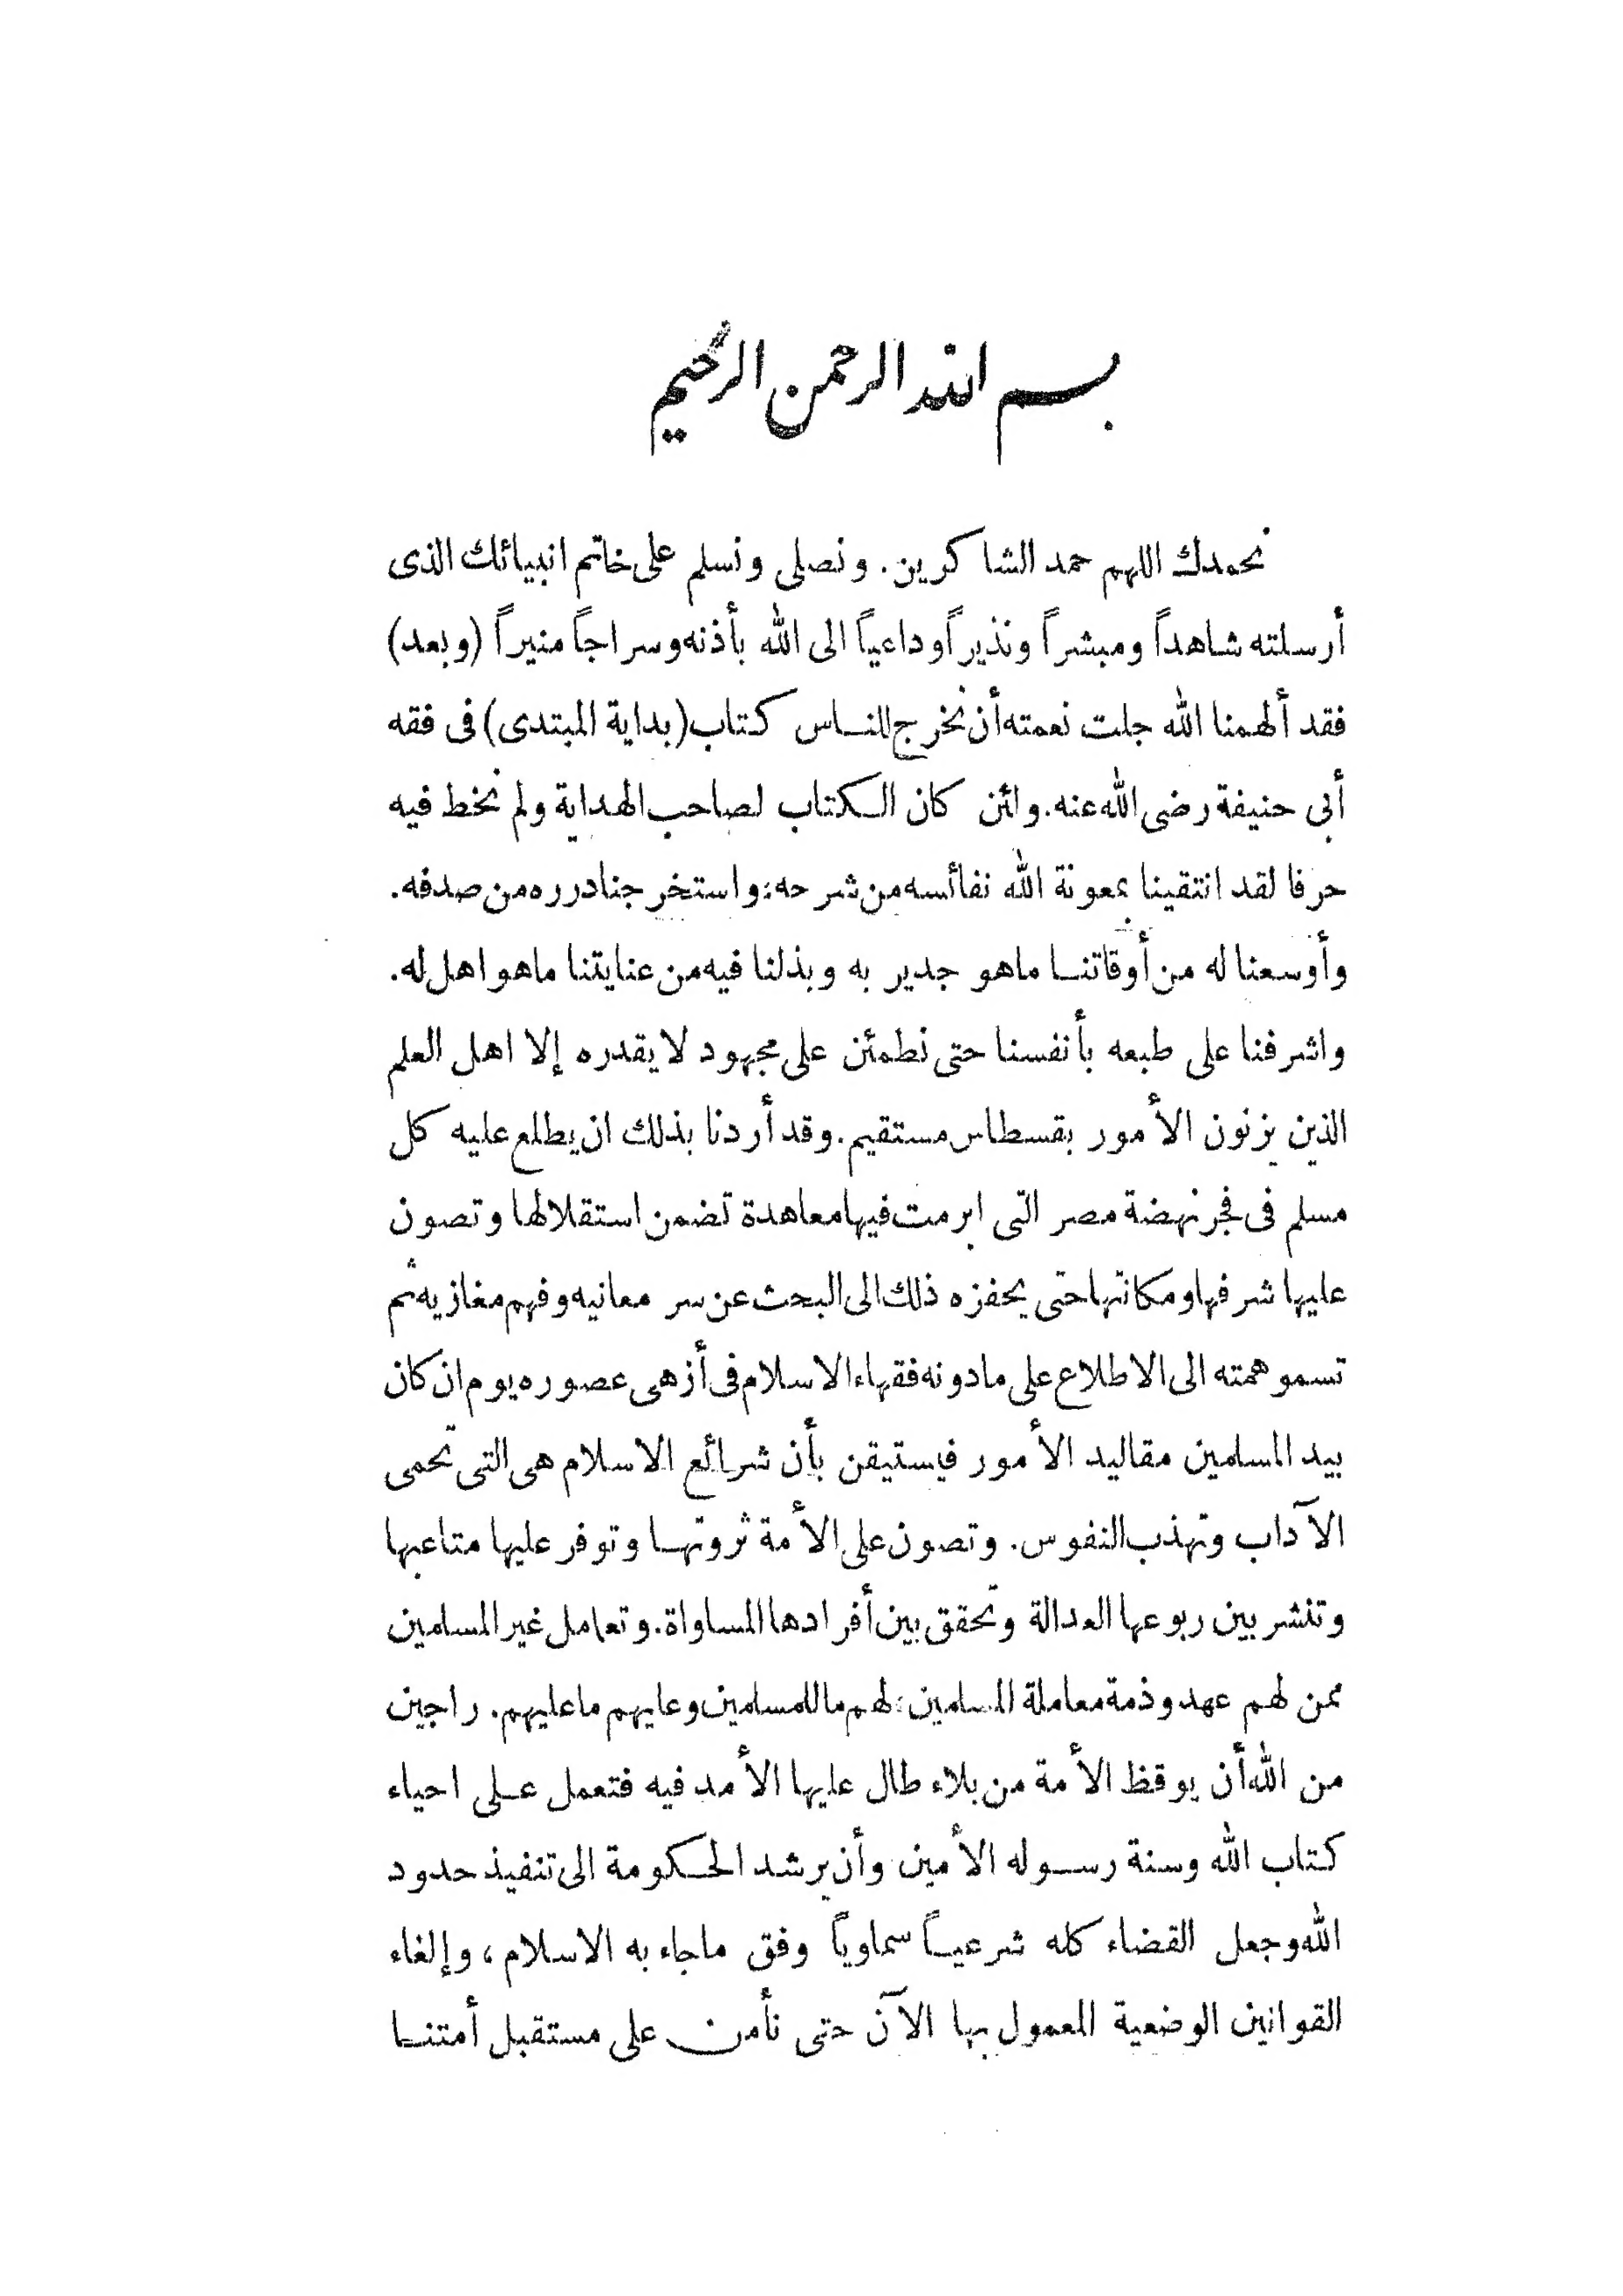 بسم الله الرحمن الرحيم
نحمدك اللهم حمد الشاكرين. ونصلى ونسلم على خاتم انبيائك الذى
أرسلته شاهداً ومبشراً ونذيراً وداعياً الى الله بأذنه وسراجاً منيراً (وبعد)
فقد ألهمنا الله جلت نعمته أن نخرج للناس كتاب (بداية المبتدى) فى فقه
أبى حنيفة رضى الله عنه. ولئن كان الكتاب لصاحب الهداية ولم نخط فيه
حرفا لقد انتقينا بمعونة الله نفائسه من شرحه: واستخرجنا درره من صدفه.
وأوسعنا له من أوقاتنا ماهو جدير به وبذلنا فيه من عنايتنا ماهو اهل له.
واشرفنا على طبعه بأنفسنا حتى نطمئن على مجهود لا يقدره إلا اهل العلم
الذين يزنون الأمور بقسطاس مستقيم. وقد أردنا بذلك ان يطلع عليه كل
مسلم فى فجر نهضة مصر التى ابرمت فيها معاهدة تضمن استقلالها وتصون
عليها شرفها ومكانتها حتى يحفزه ذلك الى البحث عن سر معانيه وفهم مغازيه ثم
تسمو همته الى الاطلاع على مادونه فقهاء الاسلام فى أزهى عصوره يوم ان كان
بيد المسلمين مقاليد الأمور فيستيقن بأن شرائع الاسلام هى التى تحمى
الآداب وتهذب النفوس. وتصون على الأمة ثروتها وتوفر عليها متاعبها
وتنشر بين ربوعها العدالة وتحقق بين أفرادها المساواة. وتعامل غير المسلمين
ممن لهم عهد وذمة معاملة المسلمين: لهم ما للمسلمين وعليهم ما عليهم. راجين
من الله أن يوقظ الأمة من بلاء طال عليها الأمد فيه فتعمل على احياء
كتاب الله وسنة رسوله الأمين وأن يرشد الحكومة الى تنفيذ حدود
الله وجعل القضاء كله شرعياً سماوياً وفق ماجاء به الاسلام، وإلغاء
القوانين الوضعية المعمول بها الآن حتى نأمن على مستقبل أمتنا